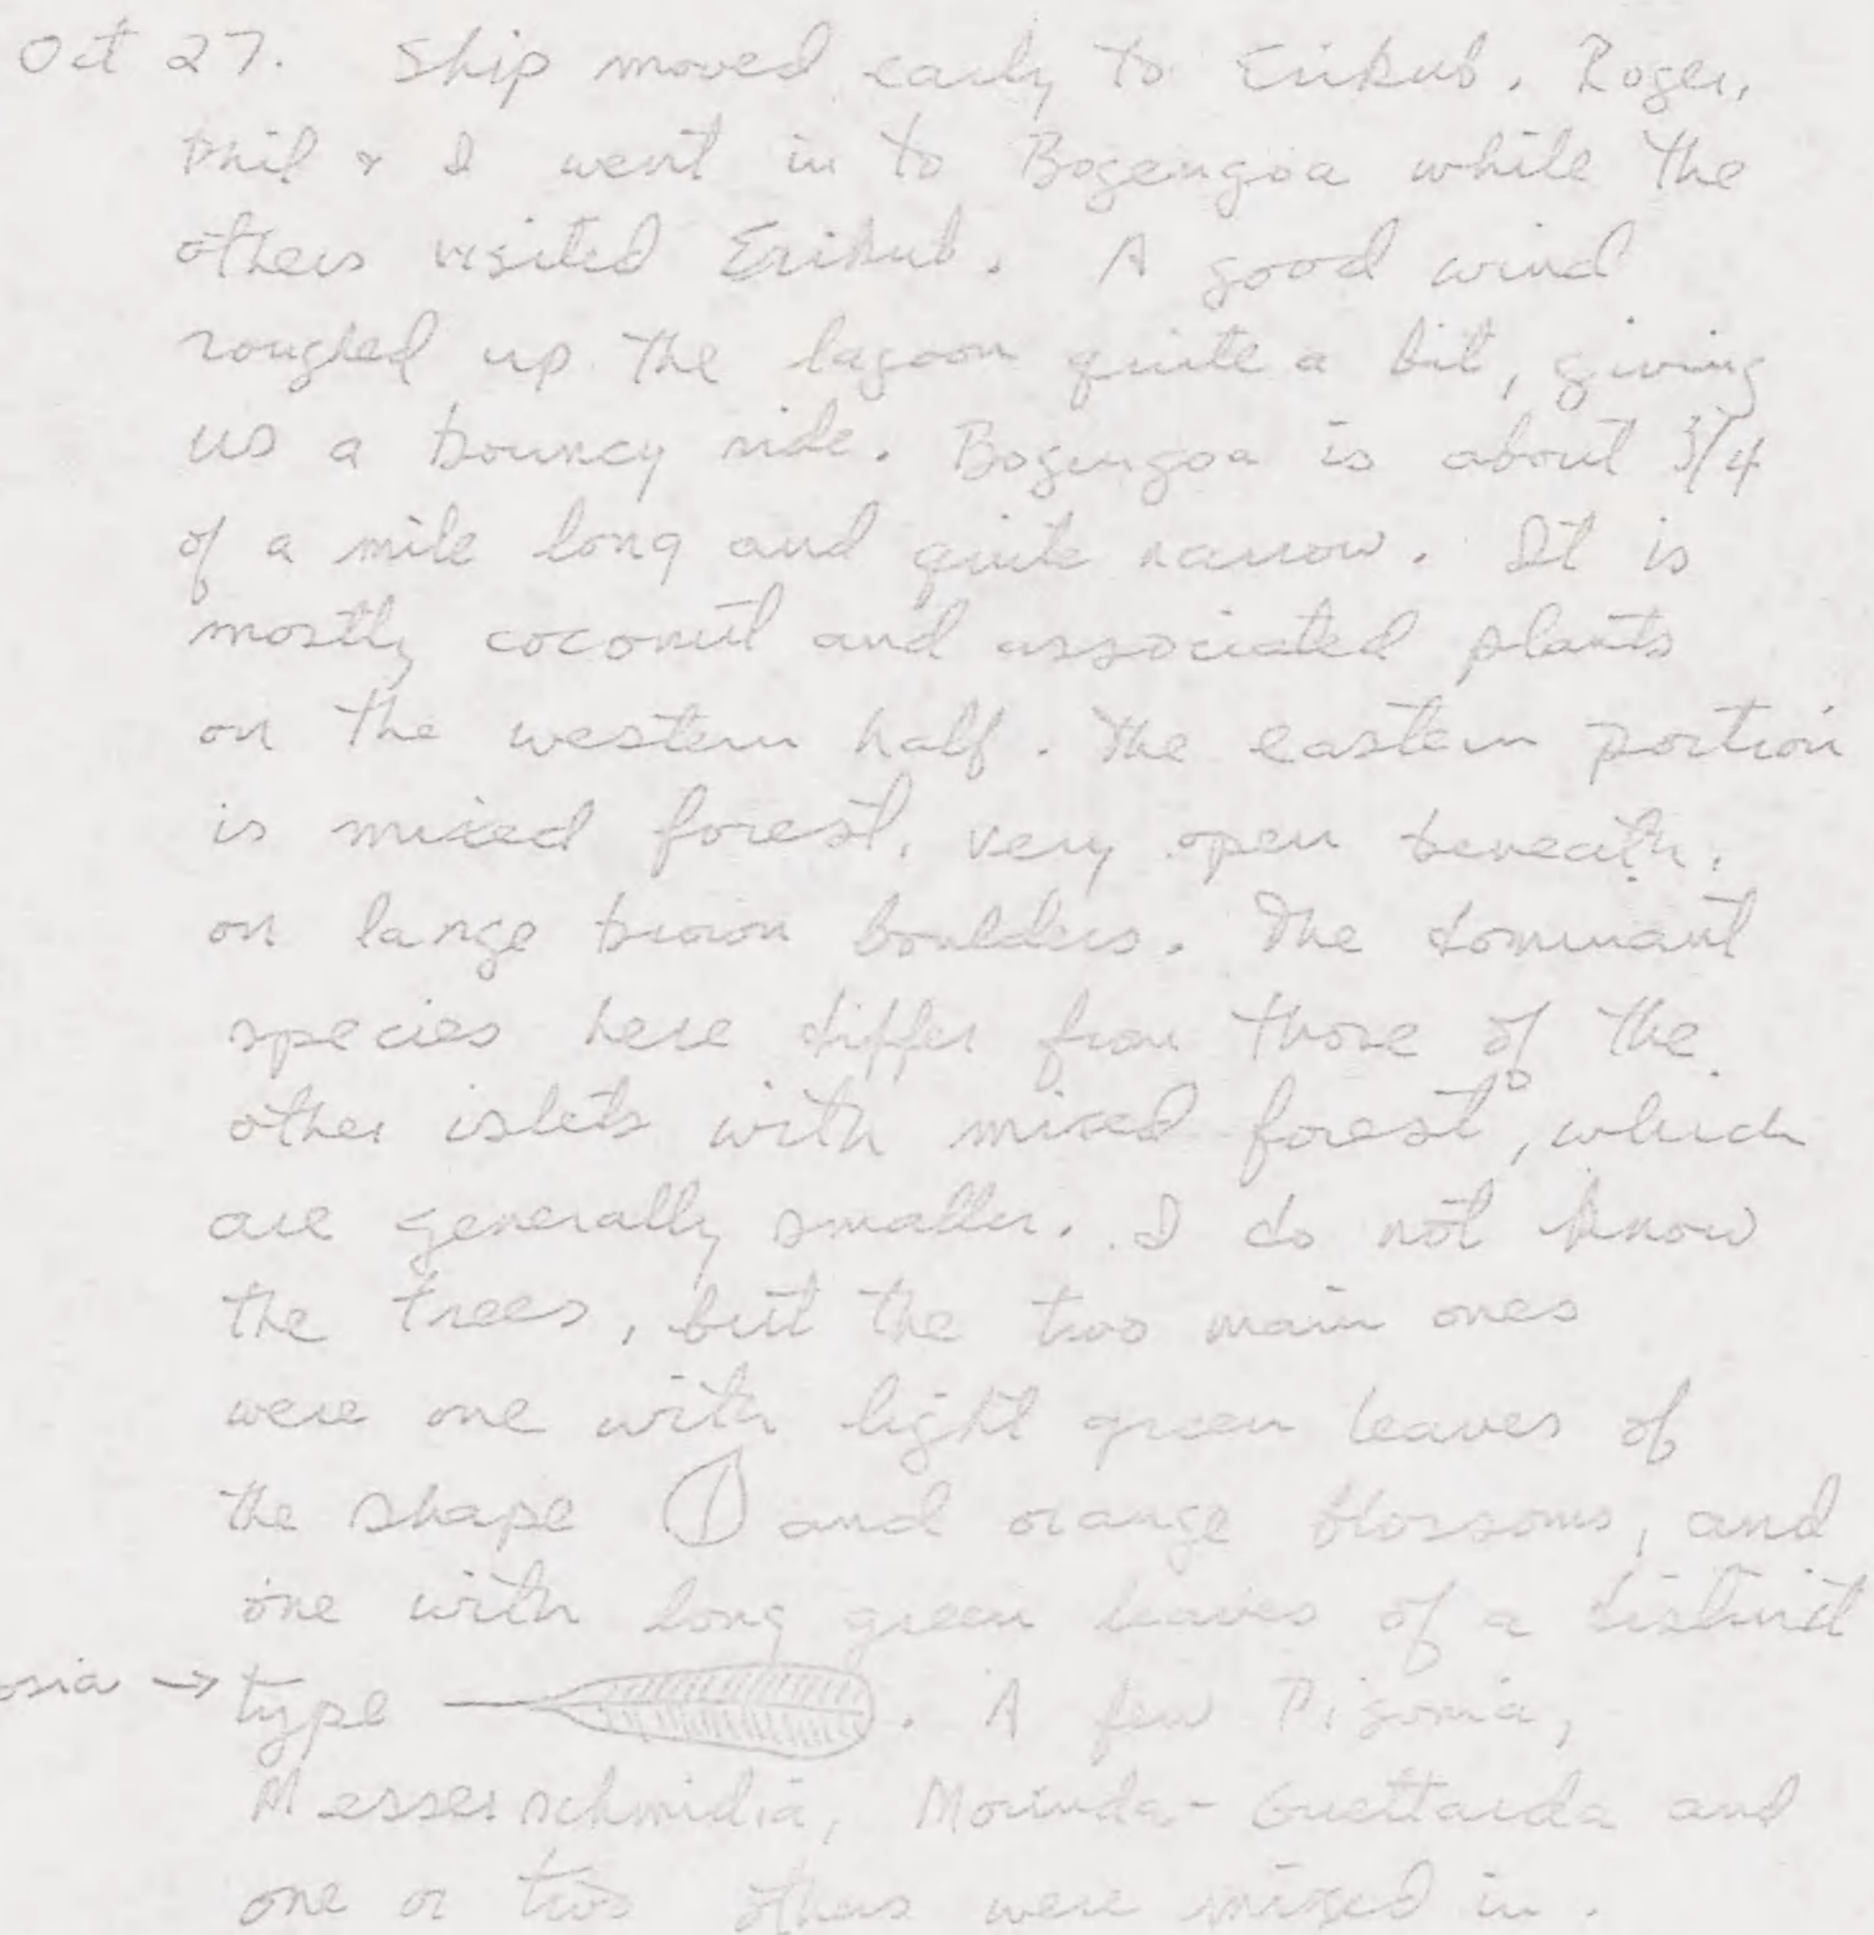 Oct 27. Ship moved early to Erikub. Roger,
Phil & I went in to Bogengoa while the
others visited Erikub. A good wind
roughed up the lagoon quite a bit, giving
us a bouncy ride. Bogengoa is about 3/4
of a mile long and quite narrow. It is
mostly coconut and associated plants
on the western half. The eastern portion
is mixed forest, very open beneath,
on large brown boulders. The dominant
species here differ from those of the
other islets with mixed forest, which
are generally smaller. I do not know
the trees, but the two main ones
were one with light green leaves of
the shape and orange blossoms, and
one with long green leaves of a distinct
osia → type . A few Pisonia,
Messerschmidia, Morinda - Guettarda and
one or two others were mixed in.